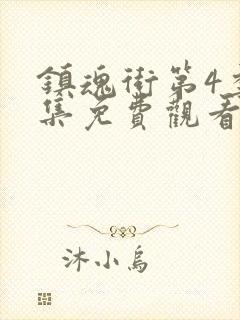 鎮魂街第4季
集免費觀看
沐小烏